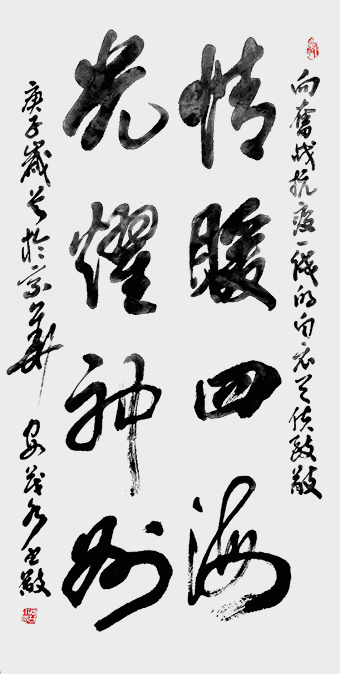 向奮战抗疫一线的白衣天使致敬
情暖四海
光耀神州
庚子歲於京華